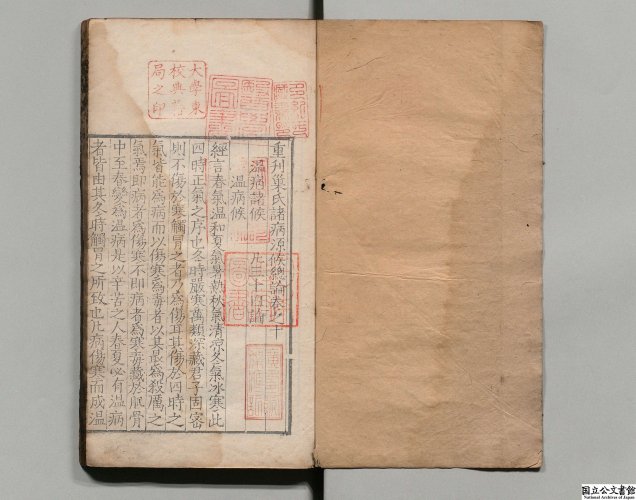 重刊巢氏諸病源候總論卷之十
溫病諸候　凡三十四論
溫病候
經言春氣溫和夏氣暑熱秋氣清涼冬氣冰寒此
四時正氣之序也冬時嚴寒萬類深藏君子固密
則不傷於寒觸冒之者乃為傷耳其傷於四時之
氣皆能為病而以傷寒為毒者以其最為殺厲之
氣焉即病者為傷寒不即病者為寒毒藏於肌骨
中至春變為溫病是以辛苦之人春夏必有溫病
者皆由其冬時觸冒之所致也凡病傷寒而成溫
大學東
校典籍
局之印
国立公文書館
National Archives of Japan